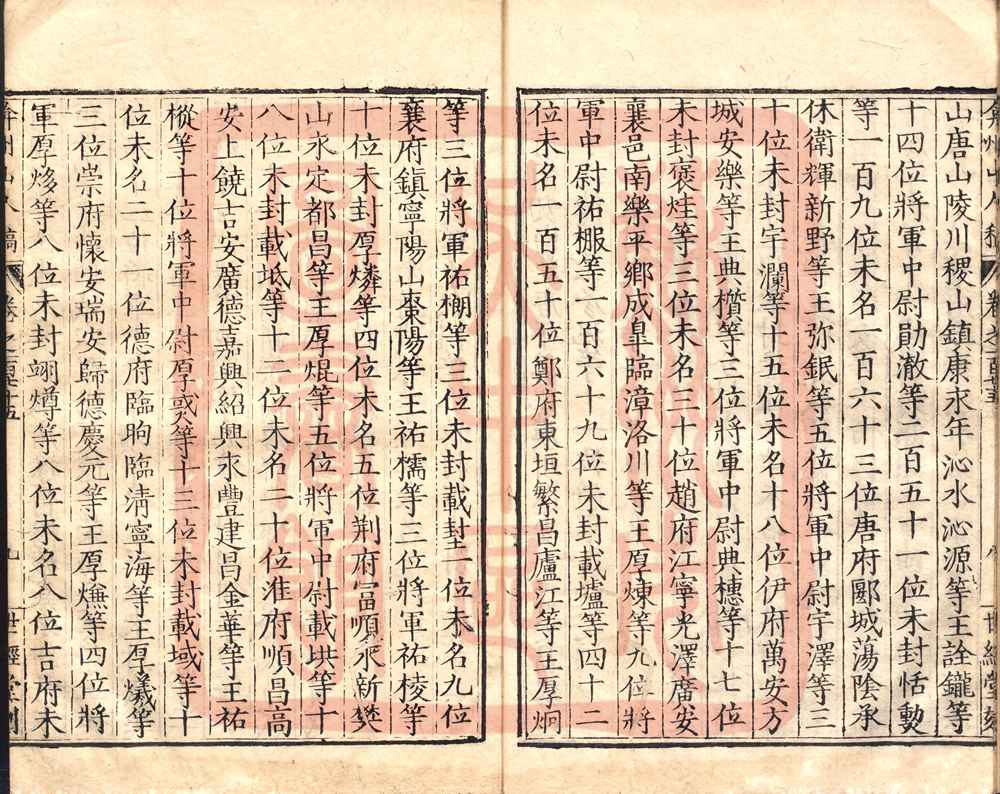 山唐山陵川稷山鎮康永年沁水沁源等王詮鑨等
十四位將軍中尉勛澈等二百五十一位未封恬㔚
等一百九位未名一百六十三位唐府郾城蕩陰承
休衛輝新野等王弥鉙等五位將軍中尉宇澤等三
十位未封宇瀾等十五位未名十八位伊府萬安方
城安樂等王典楙等三位將軍中尉典穗等十七位
未封褒烓等三位未名三十位趙府江寧光澤廣安
襄邑南樂平鄉成皐臨漳洛川等王厚煉等九位將
軍中尉祐棴等一百六十九位未封載壚等四十二
位未名一百五十位鄭府東垣繁昌廬江等王厚炯
等三位將軍祐棚等三位未封載堼二位未名九位
襄府鎮寧陽山棗陽等王祐檽等三位將軍祐棱等
十位未封厚燐等四位未名五位荆府富順永新樊
山永定都昌等王厚焜等五位將軍中尉載垬等十
八位未封載坻等十二位未名二十位淮府順昌高
安上饒吉安廣德嘉興紹興永豐建昌金華等王祐
樅等十位將軍中尉厚燛等十三位未封載域等十
位未名二十一位德府臨朐臨清寧海等王厚爔等
三位崇府懷安瑞安歸德慶元等王厚爑等四位將
軍厚熪等八位未封翊㷮等八位未名八位吉府未